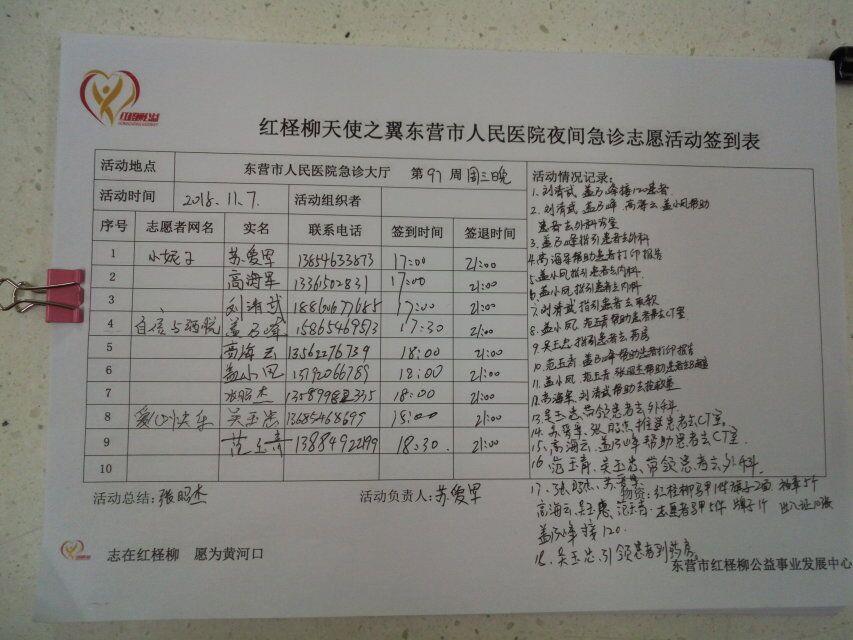 红柽柳天使之翼东营市人民医院夜间急诊志愿活动签到表
活动地点 东营市人民医院急诊大厅 第97周周三晚
活动时间 2018.11.7. 活动组织者
序号 志愿者网名 实名 联系电话 签到时间 签退时间
1 小妮子 苏爱军 13854633873 17:00 21:00
2 高海军 13361502831 17:00 21:00
3 刘清武 17:00 21:00
4 自信与洒脱 盖乃峰 15865469573 17:30 21:00
5 高海云 13562276739 18:00 21:00
6 盖小凤 13792066789 18:00 21:00
7 张昭杰 18:00 21:00
8 爱心快乐 吴玉忠 13685468699 18:00 21:00
9 范玉青 13884922199 18:30 21:00
10
活动总结:张昭杰 活动负责人:苏爱军
志在红柽柳 愿为黄河口
活动情况记录:
1.刘清武、盖乃峰接120患者
2.刘清武、盖乃峰、高海云、盖小凤帮助
患者去外科
3.盖乃峰指引患者去外科
4.高海军帮助患者打印报告
5.盖小凤指引患者去内科
6.盖小凤指引患者去内科
7.刘清武指引患者去取款
8.盖小凤、范玉青帮助患者去CT室
9.吴玉忠指引患者去药房
10.范玉青、盖乃峰帮助患者打印报告
11.盖小凤、范玉青、张昭杰帮助患者
12.高海军、刘清武帮助去
13.吴玉忠带领患者去外科.
14.苏爱军、张昭杰推送患者去CT室.
15.高海云、盖乃峰帮助患者去CT室
16.范玉青、吴玉忠、带领患者去外科.
17.张昭杰、苏爱军
物资:红柽柳马甲1件 旗子2面 袖章5个
高海云、吴玉忠、范玉青. 志愿者马甲5件 牌子1个 出入证10张
盖乃峰接120.
18.吴玉忠引领患者到药房.
东营市红柽柳公益事业发展中心